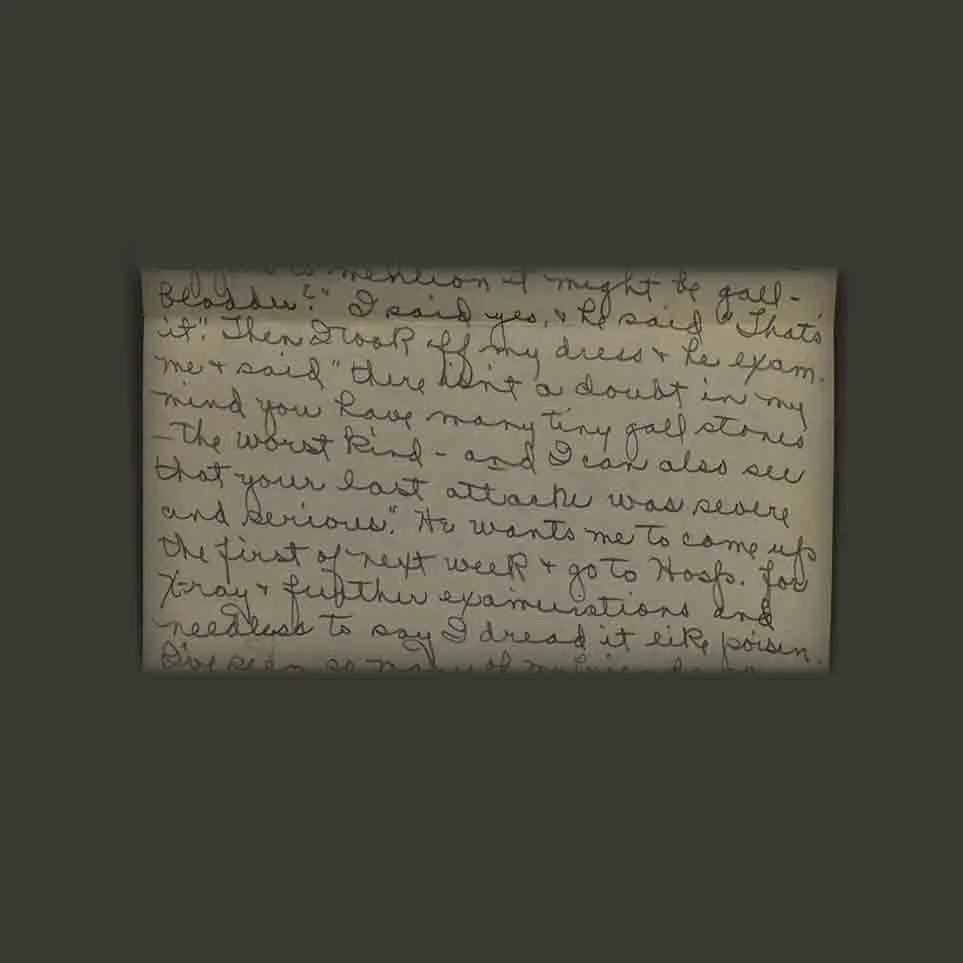 to mention it might be gall-
Bladder?" I said yes, & he said "That's
it". Then I took off my dress & he exam.
me & said "there isn't a doubt in my
mind you have many tiny gall stones
- The worst kind - and I can also see
that your last attack was severe
and serious". He wants me to come up
the first of next week & go to Hosp. for
X-ray & further examinations and
needless to say I dread it like poisin.
I've seen so many of my